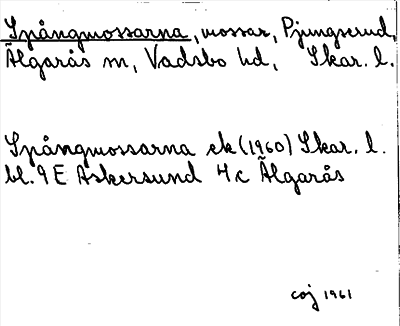 Spångmossarna, mossar, Pjungserud,
Älgarås sn, Vadsbo hd, Skar. l.
Spångmossarna ek (1960) Skar. l.
bl. 9 E Askersund 4c Älgarås
coj 1961